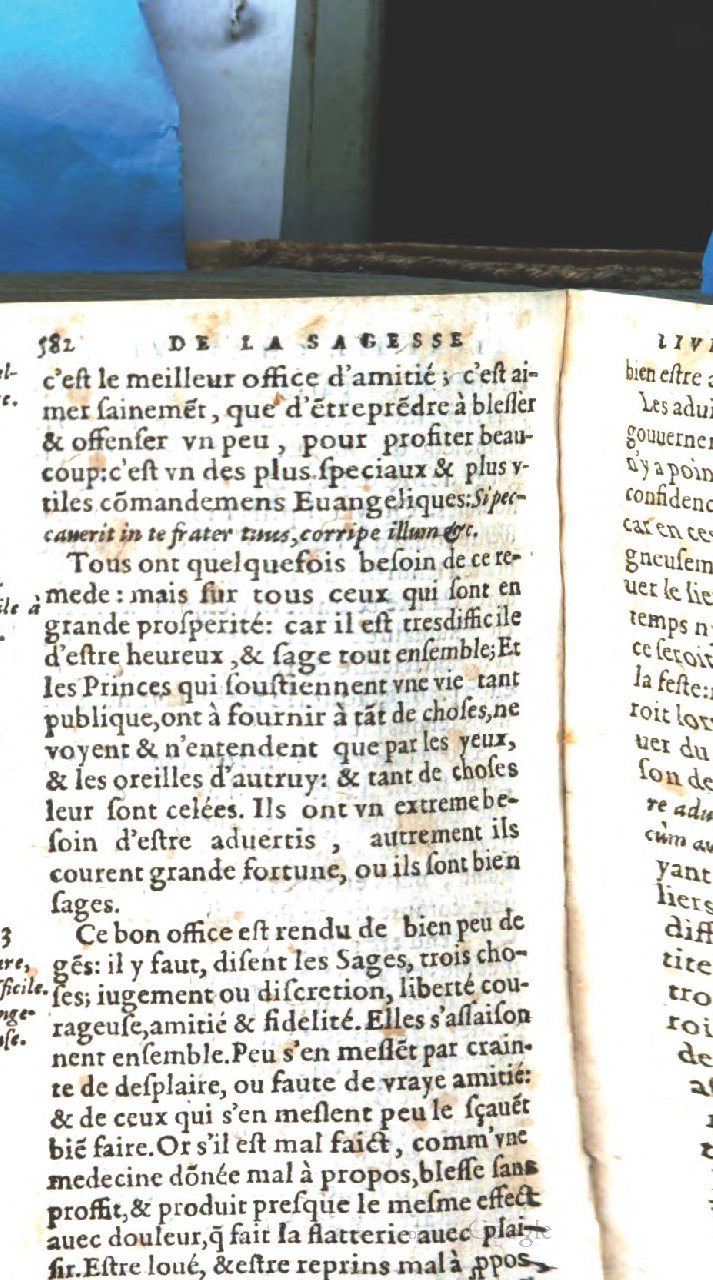 582 DE LA SAGESSE
c'eſt le meilleur office d'amitié; c'eſt ai-
mer ſainemẽt, que d'ẽtreprẽdre à bleſſer
& offenſer vn peu, pour profiter beau-
coup:c'eſt vn des plus ſpeciaux & plus v-
tiles cõmandemens Euangeliques:Si pec-
cauerit in te frater tuus,corripe illum &c.
Tous ont quelquefois beſoin de ce re-
mede: mais ſur tous ceux qui ſont en
grande proſperité: car il eſt tresdifficile
d'eſtre heureux,& ſage tout enſemble;Et
les Princes qui ſouſtiennent vne vie tant
publique,ont à fournir à tãt de choſes,ne
voyent & n'entendent que par les yeux,
& les oreilles d'autruy: & tant de choſes
leur ſont celées. Ils ont vn extreme be-
ſoin d'eſtre aduertis, autrement ils
courent grande fortune, ou ils ſont bien
ſages.
Ce bon office eſt rendu de bien peu de
gẽs: il y faut, diſent les Sages, trois cho-
ſes; iugement ou diſcretion, liberté cou-
rageuſe,amitié & fidelité.Elles s'aſſaiſon
nent enſemble.Peu s'en meſlẽt par crain-
te de deſplaire, ou faute de vraye amitié:
& de ceux qui s'en meſlent peu le ſçauẽt
biẽ faire.Or s'il eſt mal faict, comm'vne
medecine dõnée mal à propos,bleſſe ſans
proffit,& produit preſque le meſme effect
auec douleur,q̃ fait la flatterie auec plai-
ſir.Eſtre loué, &eſtre reprins mal à ꝓpos
3
à
LIV
bien eſtre
Les adui
gouuerner
n'y a poin
confidenc
car en ces
gneuſem
uer le lie
temps n
ce ſeroit
la feſte:
uer du
ſon de
re adu
cùm au
yant
liers
diff
tite
tro
roi
de
Google